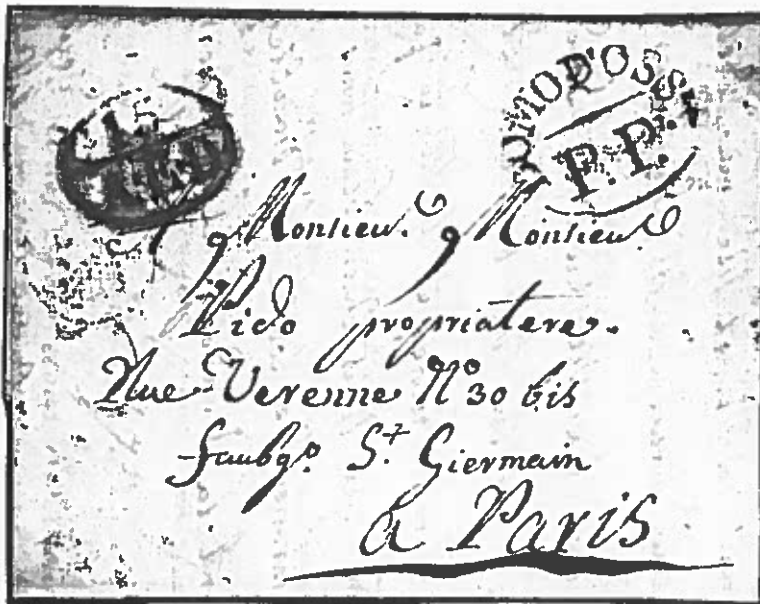 DOMOD'OSSA
P.P.
Monsieur Monsieur
Pido propriatere.
Rue Varenne N° 30 bis
faubgo St Giermain
a Paris